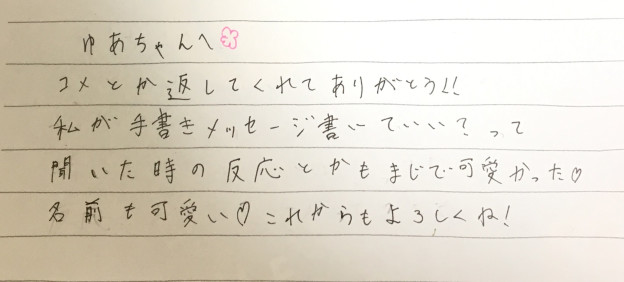 ゆあちゃんへ
コメとか返してくれてありがとう!!
私が手書きメッセージ書いていい?って
聞いた時の反応とかもまじで可愛かった♡
名前も可愛い♡これからもよろしくね!